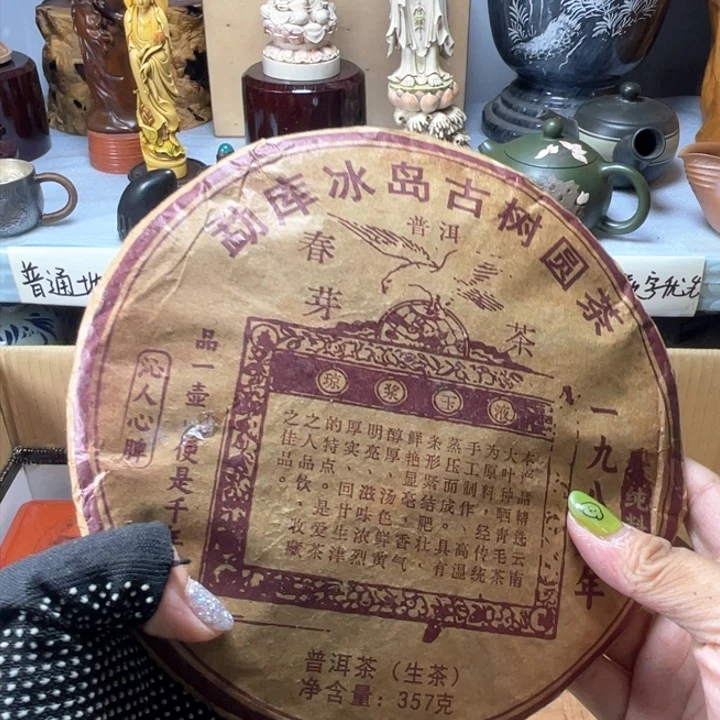 勐库冰岛古树圆茶
普洱
春芽
茶
品一壶
便是千
沁人心脾
琼浆玉液
本品精选云南
大叶种晒青毛茶
为原料，经传统
手工制作、高温
蒸压而成。具有
条形紧结、肥壮
鲜艳显毫、香气
醇厚、汤色黄
明亮、滋味浓烈
厚实、回甘生津
的特点。是爱茶
之人品饮、收藏
之佳品。
一九八
年
纯
普洱茶（生茶）
净含量：357克
普通
字优先